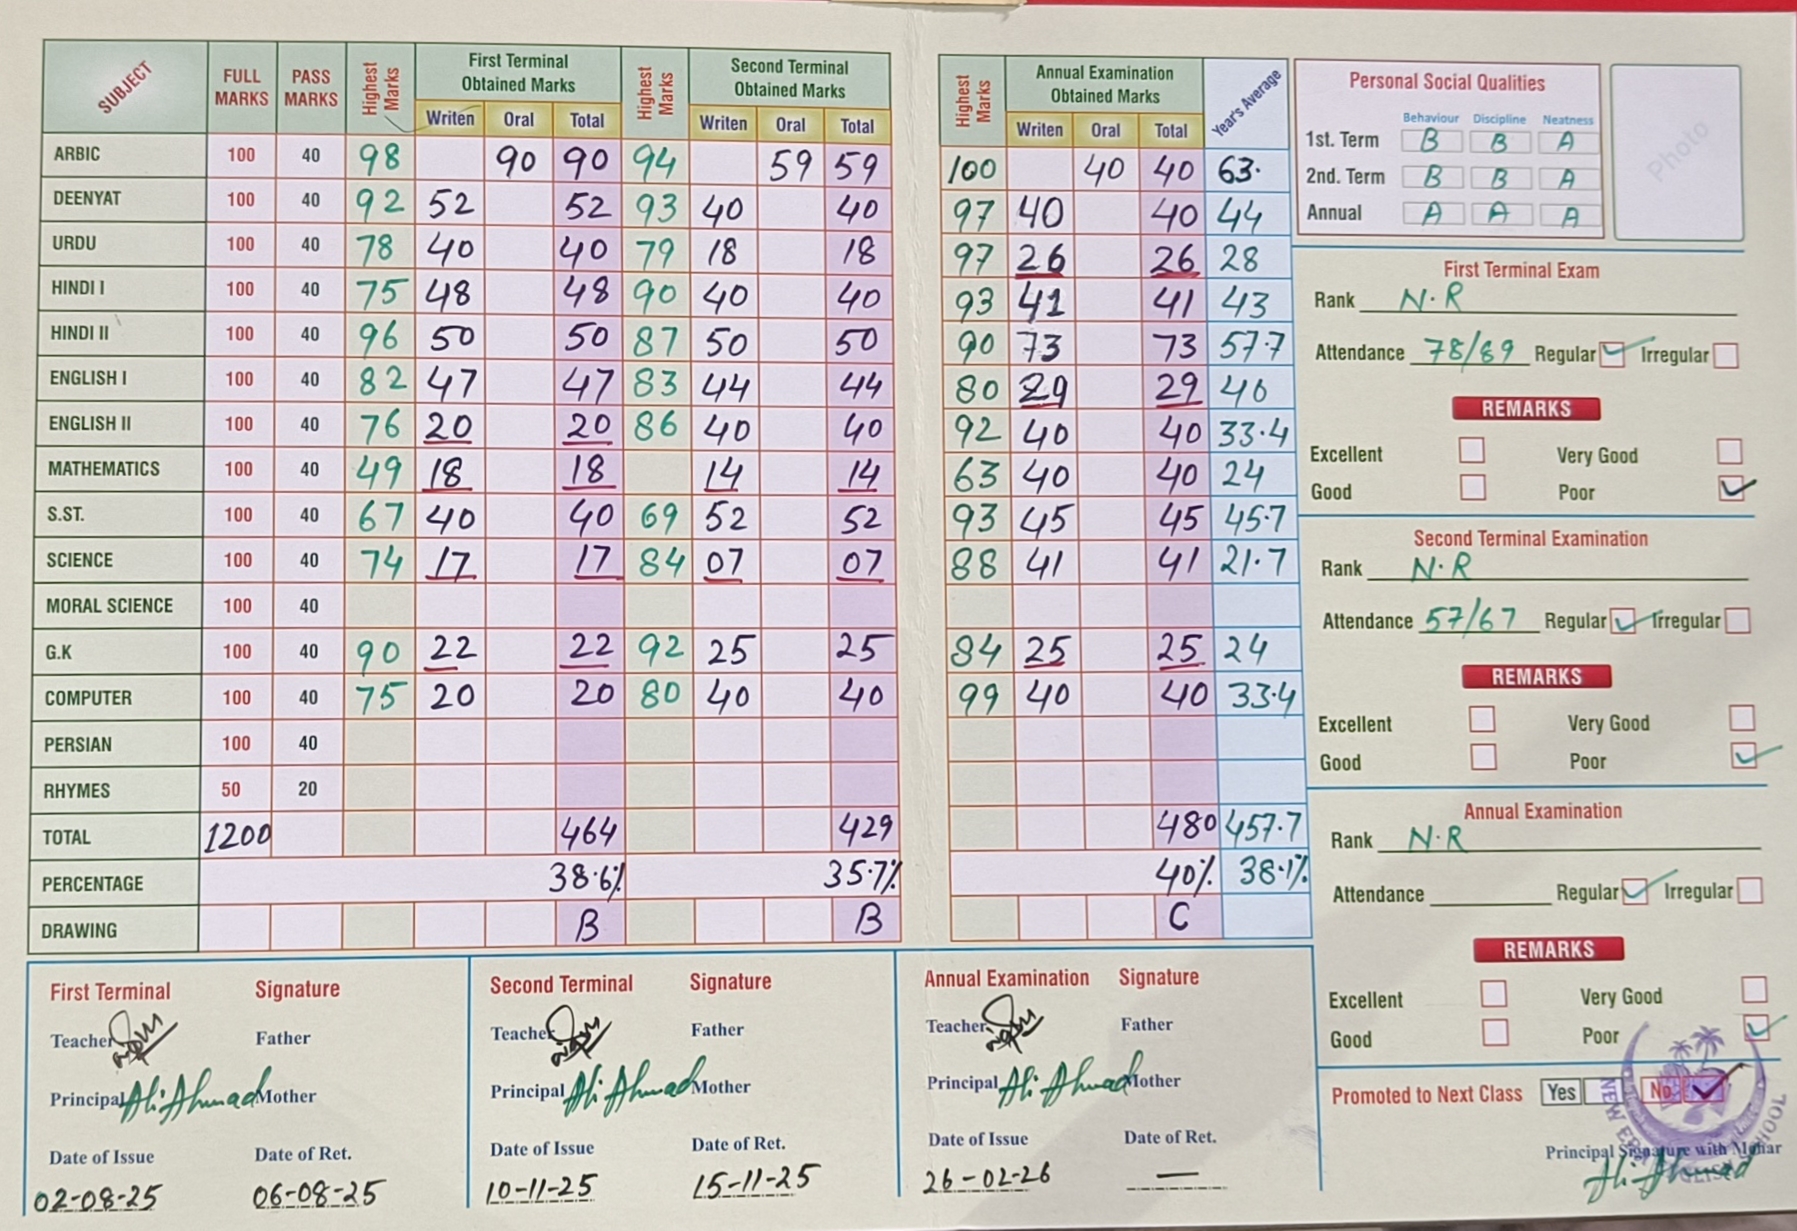 SUBJECT FULL MARKS PASS MARKS Highest Marks First Terminal Obtained Marks Highest Marks Second Terminal Obtained Marks Highest Marks Annual Examination Obtained Marks Year's Average
Writen Oral Total Writen Oral Total Writen Oral Total
ARBIC 100 40 98 90 90 94 59 59 100 40 40 63.
DEENYAT 100 40 92 52 52 93 40 40 97 40 40 44
URDU 100 40 78 40 40 79 18 18 97 26 26 28
HINDI I 100 40 75 48 48 90 40 40 93 41 41 43
HINDI II 100 40 96 50 50 87 50 50 90 73 73 57.7
ENGLISH I 100 40 82 47 47 83 44 44 80 29 29 40
ENGLISH II 100 40 76 20 20 86 40 40 92 40 40 33.4
MATHEMATICS 100 40 49 18 18 14 14 63 40 40 24
S.ST. 100 40 67 40 40 69 52 52 93 45 45 45.7
SCIENCE 100 40 74 17 17 84 07 07 88 41 41 21.7
MORAL SCIENCE 100 40
G.K 100 40 90 22 22 92 25 25 84 25 25 24
COMPUTER 100 40 75 20 20 80 40 40 99 40 40 33.4
PERSIAN 100 40
RHYMES 50 20
TOTAL 1200 464 429 480 457.7
PERCENTAGE 38.6% 35.7% 40% 38.1%
DRAWING B B C
Personal Social Qualities
Behaviour Discipline Neatness
1st. Term B B A
2nd. Term B B A
Annual A A A
Photo
First Terminal Exam
Rank N.R
Attendance 78/89 Regular Irregular
REMARKS
Excellent Very Good
Good Poor
Second Terminal Examination
Rank N.R
Attendance 57/67 Regular Irregular
REMARKS
Excellent Very Good
Good Poor
Annual Examination
Rank N.R
Attendance Regular Irregular
REMARKS
Excellent Very Good
Good Poor
Promoted to Next Class Yes No
Principal Signature with Mohar
Ali Ahmad
First Terminal Signature
Teacher Father
Principal Ali Ahmad Mother
Date of Issue Date of Ret.
02-08-25 06-08-25
Second Terminal Signature
Teacher Father
Principal Ali Ahmad Mother
Date of Issue Date of Ret.
10-11-25 15-11-25
Annual Examination Signature
Teacher Father
Principal Ali Ahmad Mother
Date of Issue Date of Ret.
26-02-26 —